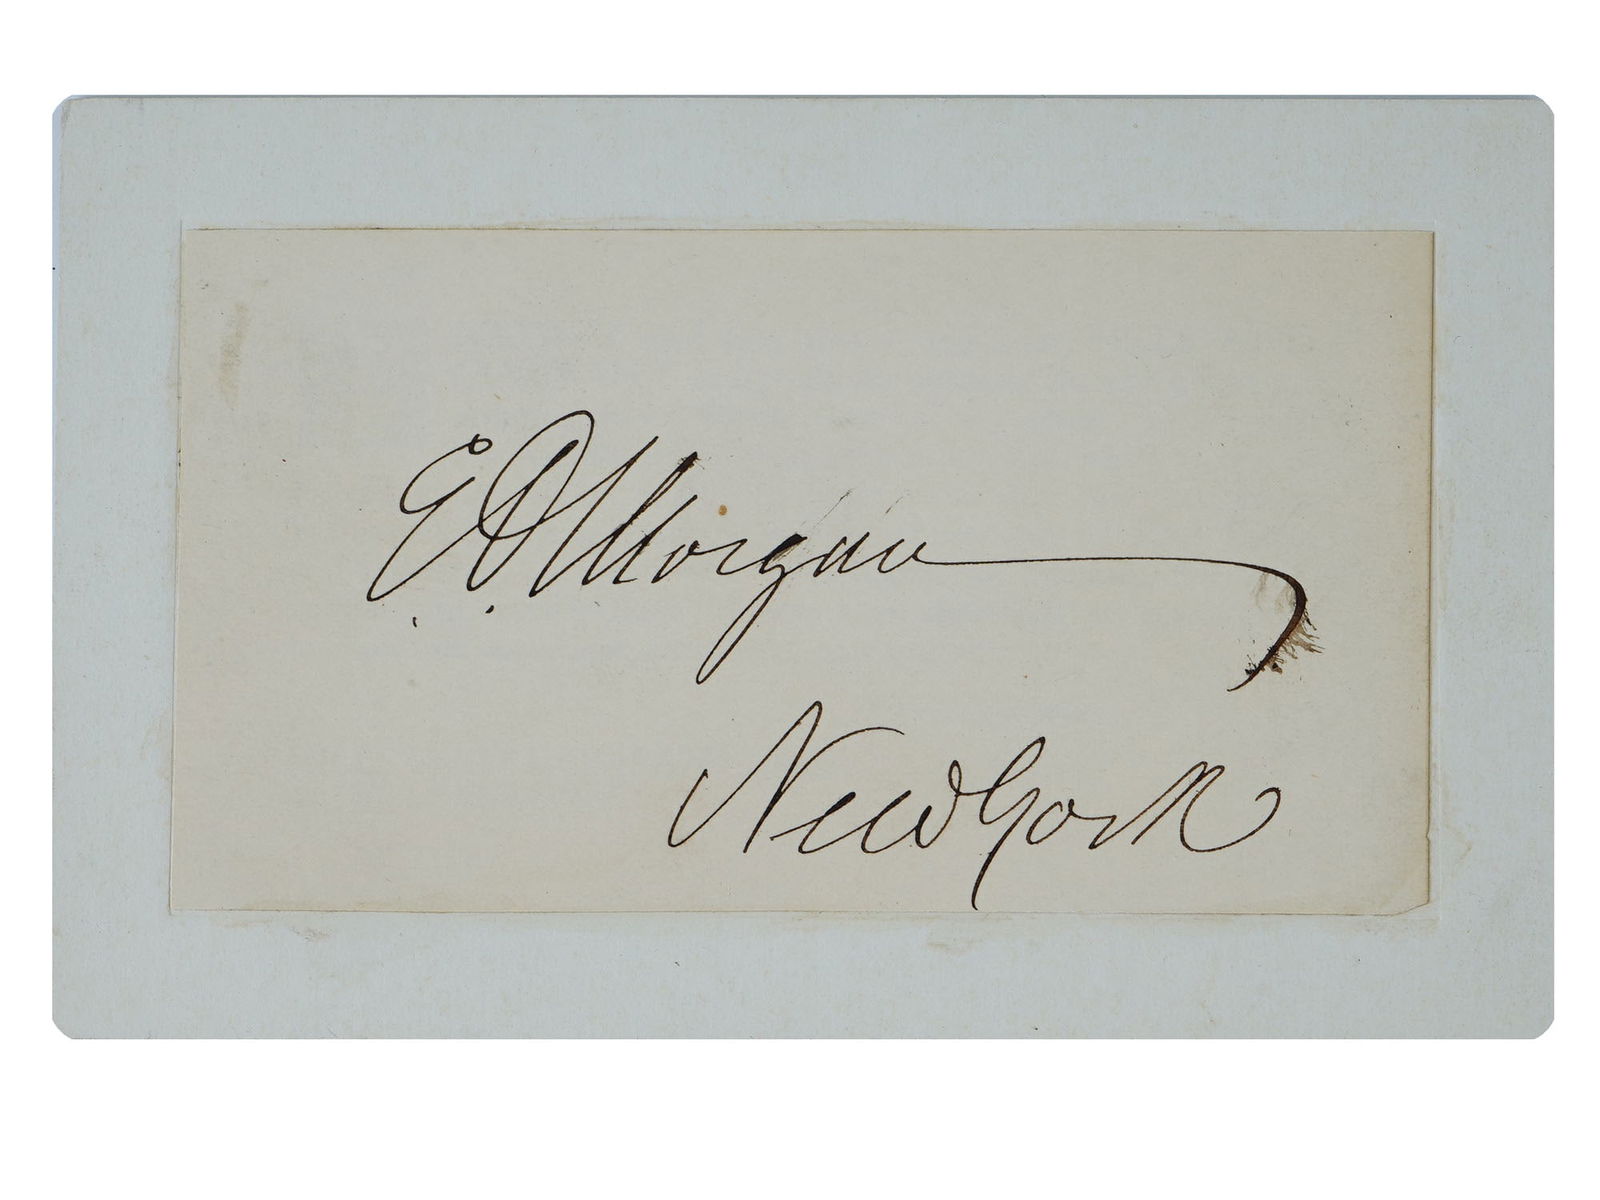 E. D. Morgan
New York